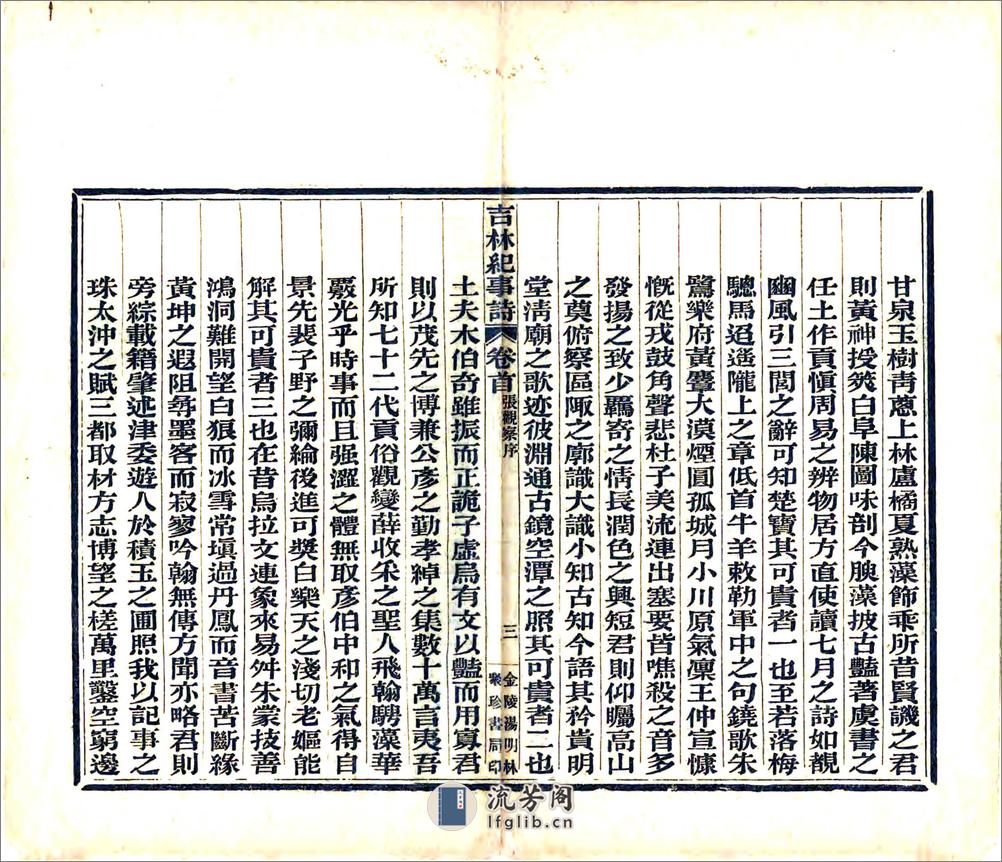 甘泉玉樹靑蔥上林盧橘夏熟藻飾乖所昔賢譏之君
則黃神授筴白阜陳圖味剖今腴藻披古豔著虞書之
任土作貢愼周易之辨物居方直使讀七月之詩如覩
豳風引三閭之辭可知楚寶其可貴者一也至若落梅
驄馬迢遙隴上之章低首牛羊敕勒軍中之句鐃歌朱
鷺樂府黃麞大漠煙圓孤城月小川原氣凜王仲宣慷
慨從戎鼓角聲悲杜子美流連出塞要皆噍殺之音多
發揚之致少羈寄之情長潤色之興短君則仰矚高山
之奠俯察區陬之廓識大識小知古知今語其矜貴明
堂淸廟之歌迹彼淵通古鏡空潭之照其可貴者二也
吉林紀事詩 卷首 張觀察序 三 金陵湯明林聚珍書局印
土夫木伯奇雖振而正詭子虛烏有文以豔而用寡君
則以茂先之博兼公彥之勤孝綽之集數十萬言夷吾
所知七十二代貢俗觀變薛收釆之聖人飛翰騁藻華
覈光乎時事而且强澀之體無取彥伯中和之氣得自
景先裴子野之彌綸後進可獎白樂天之淺切老嫗能
解其可貴者三也在昔烏拉文連象來易舛朱蒙技善
鴻洞難開望白狼而冰雪常塡過丹鳳而音書苦斷緣
黃坤之遐阻尋墨客而寂寥吟翰無傳方聞亦略君則
旁綜載籍肇述津委遊人於積玉之圃照我以記事之
珠太沖之賦三都取材方志博望之槎萬里鑿空窮邊
流芳阁
lfglib.cn